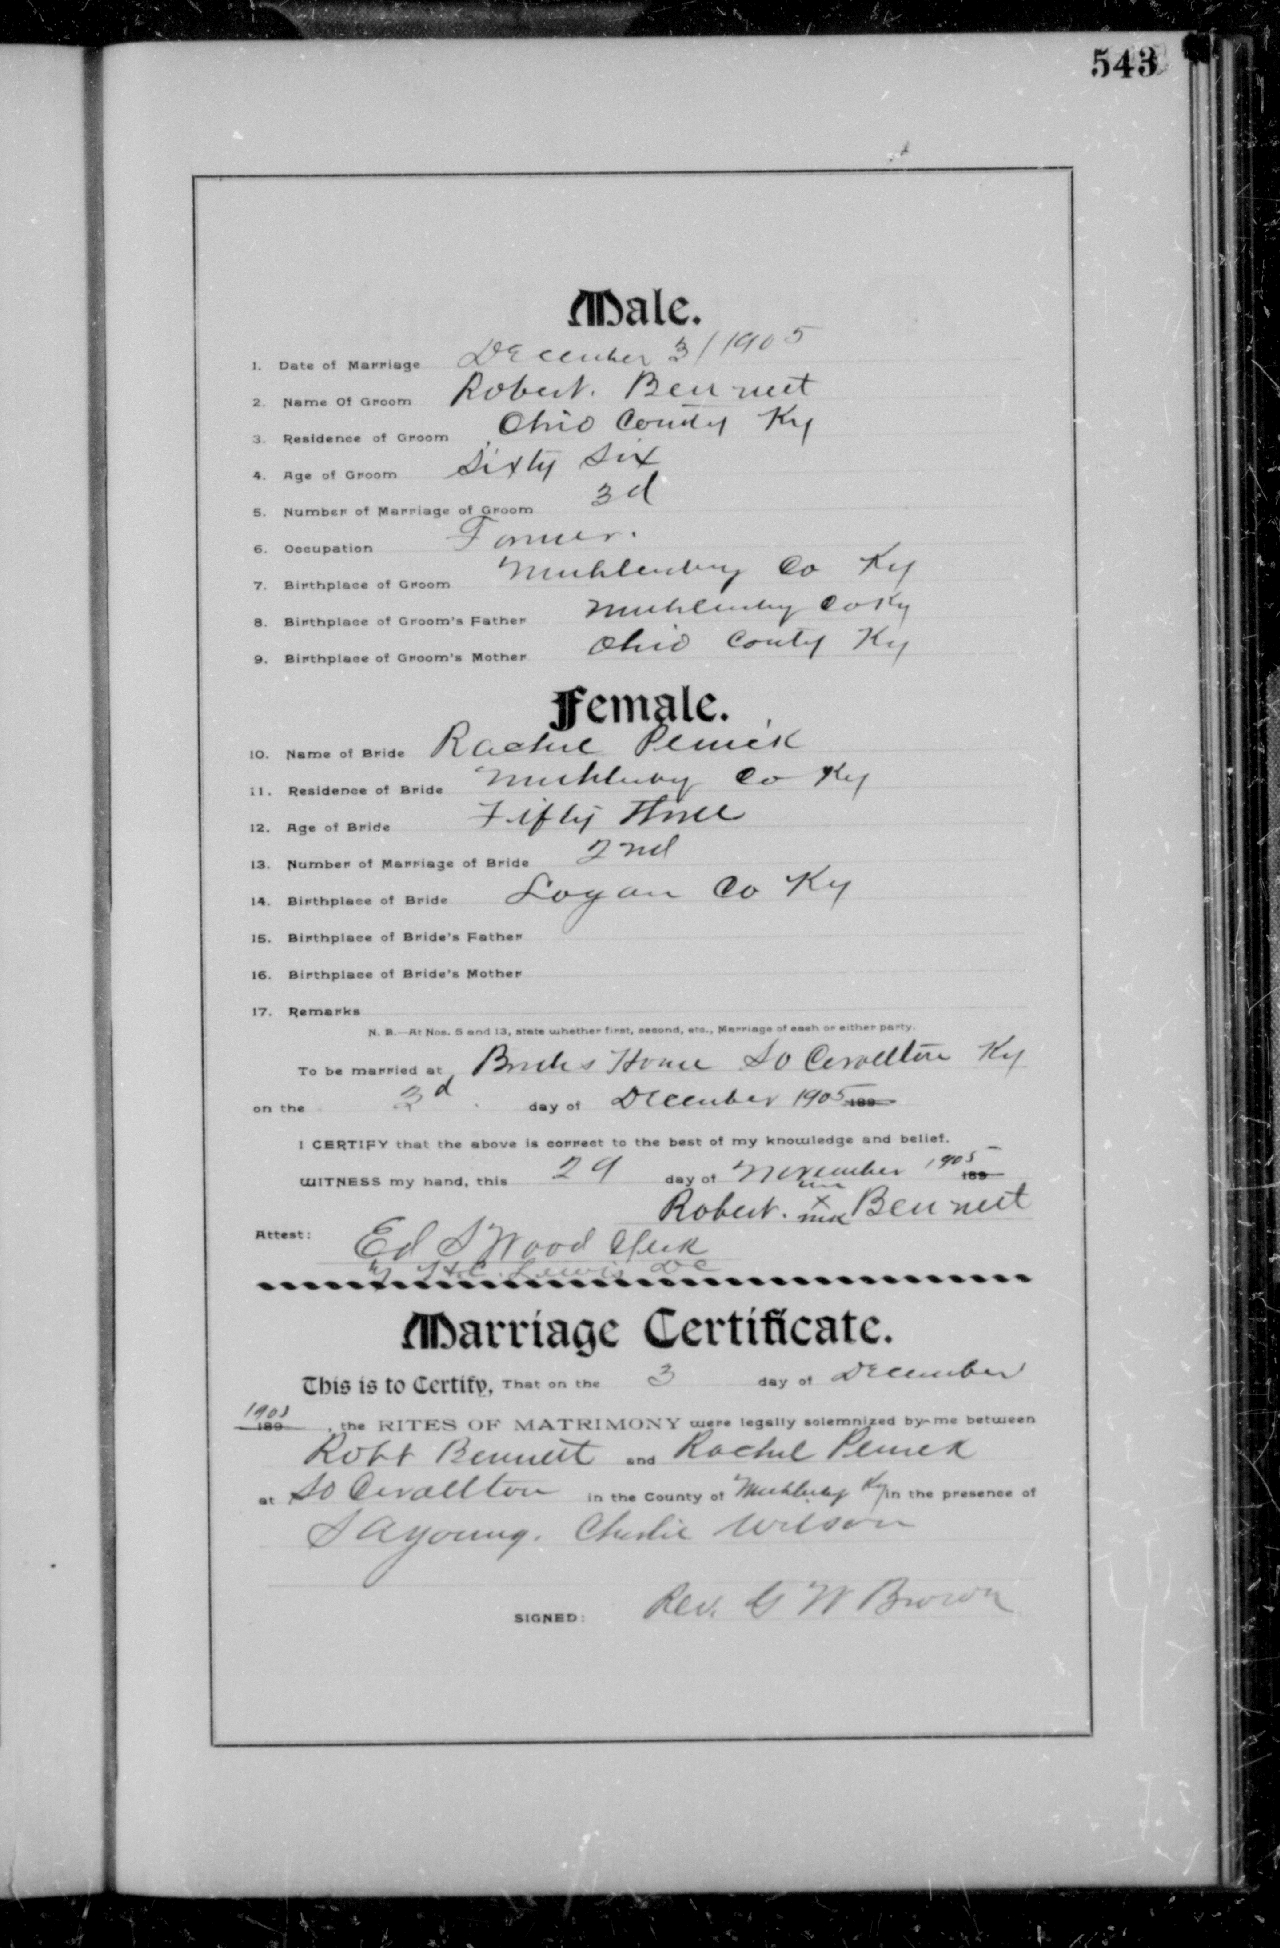 543
Male.
1. Date of Marriage December 3/1905
2. Name Of Groom Robert. Bennett
3. Residence of Groom Ohio County Ky
4. Age of Groom Sixty Six
5. Number of Marriage of Groom 3d
6. Occupation Farmer.
7. Birthplace of Groom Muhlenberg Co Ky
8. Birthplace of Groom's Father Muhlenberg Co Ky
9. Birthplace of Groom's Mother Ohio County Ky
Female.
10. Name of Bride Rachel Penick
11. Residence of Bride Muhlenberg Co Ky
12. Age of Bride Fifty Three
13. Number of Marriage of Bride 2nd
14. Birthplace of Bride Logan Co Ky
15. Birthplace of Bride's Father
16. Birthplace of Bride's Mother
17. Remarks
N. B.—At Nos. 5 and 13, state whether first, second, etc., Marriage of each or either party.
To be married at Brides Home So Cerollton Ky
on the 3d day of December 1905 189
I CERTIFY that the above is correct to the best of my knowledge and belief.
WITNESS my hand, this 29 day of November 1905 189
Robert. x Bennett
Attest: Ed S Wood Clerk
By H.C. Lewis DC
Marriage Certificate.
This is to Certify, That on the 3 day of December
1905 189 , the RITES OF MATRIMONY were legally solemnized by me between
Robt Bennett and Rachel Penick
at So Cerollton in the County of Muhlenberg Ky in the presence of
S A Young. Charlie Wilson
SIGNED: Rev. G W Brown